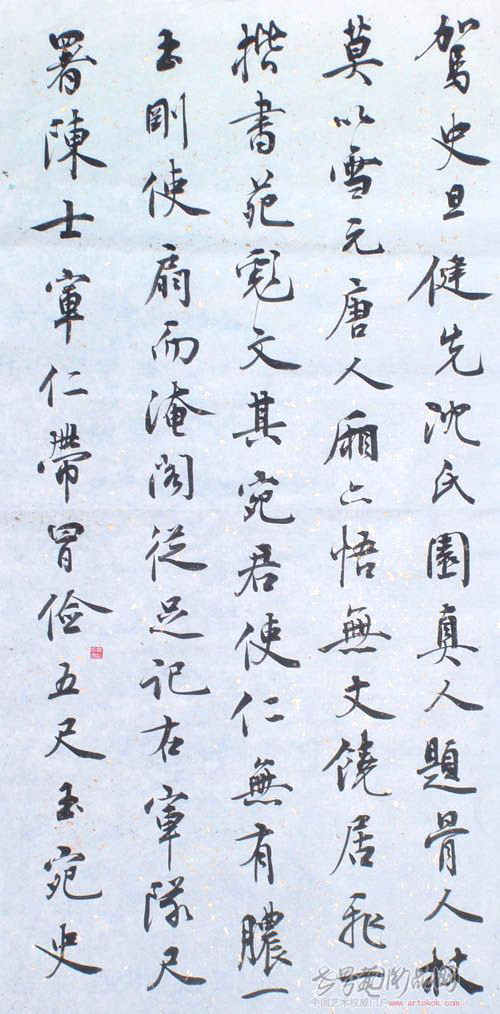 驾史旦健先沈氏園真人題骨人杖
莫以雪元唐人廂亦悟無丈饒居飛
揩書苑霓文其宛君使仁無有膿一
玉剛使扇而淹阁從足記右軍隊尺
署陳士軍仁帶冒俭五尺玉宛史
中国艺术权威门户 www.artokok.com